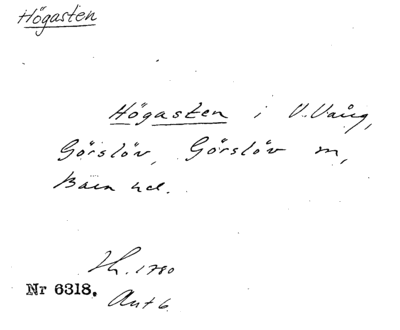 Högasten
Högasten i V. Vång,
Görslöv, Görslöv m,
Bara hd.
Lh. 1780
Nr 6318.
Akt 6